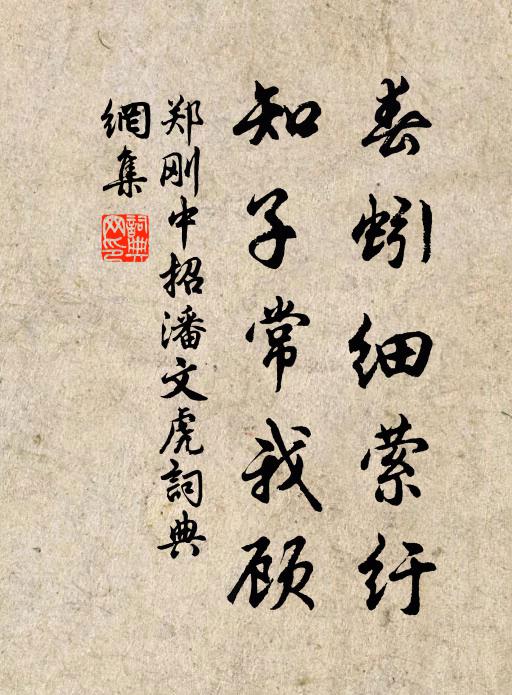 春蚓细萦纡
知子常我顾
郑刚中招潘文虎詞典
網集
詞典
网印